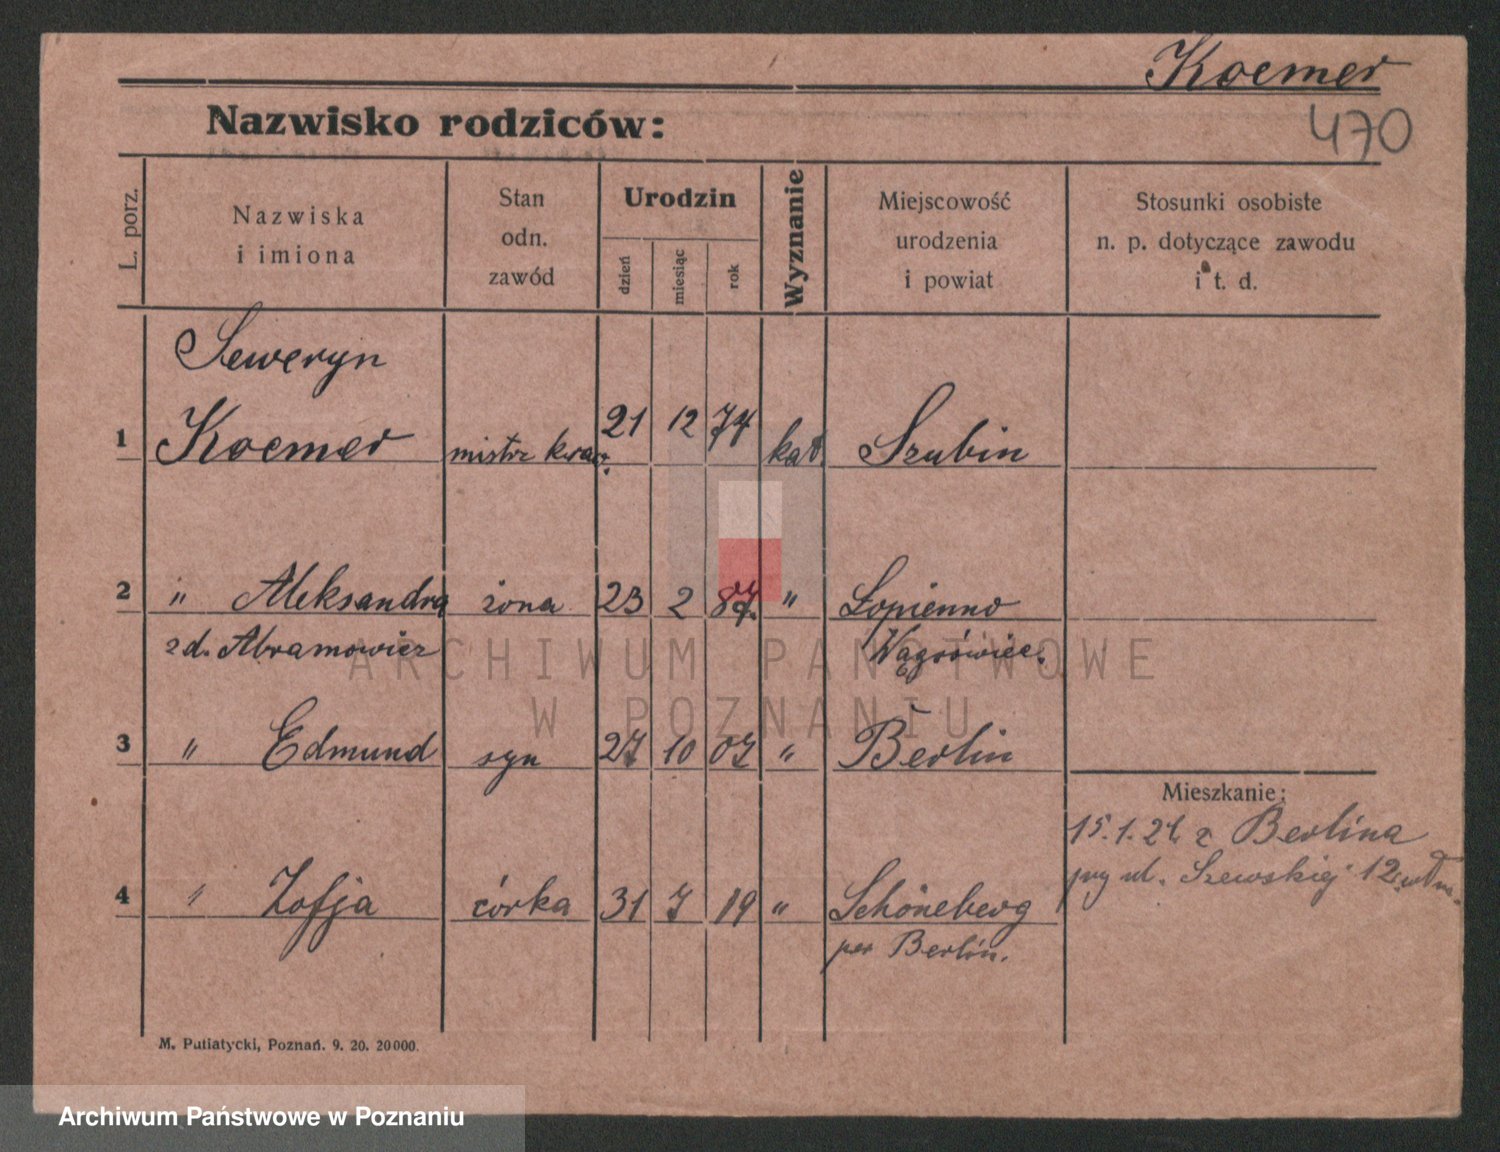 Koemer
470
Nazwisko rodziców:
L. porz.
Nazwiska
i imiona
Stan
odn.
zawód
Urodzin
dzień
miesiąc
rok
Wyznanie
Miejscowość
urodzenia
i powiat
Stosunki osobiste
n. p. dotyczące zawodu
i t. d.
Seweryn
1 Koemer mistrz kraw. 21 12 74 kat. Szubin
2 " Aleksandra żona 23 2 " Łopienno
zd. Abramowicz Wągrówiec.
3 " Edmund syn 27 10 07 " Berlin
Mieszkanie:
15.1.21. z Berlina
przy ul. Szewskiej 12
4 " Zofja córka 31 7 19 " Schöneberg
per Berlin.
M. Putiatycki, Poznań. 9. 20. 20000.
ARCHIWUM PAŃSTWOWE
W POZNANIU
Archiwum Państwowe w Poznaniu